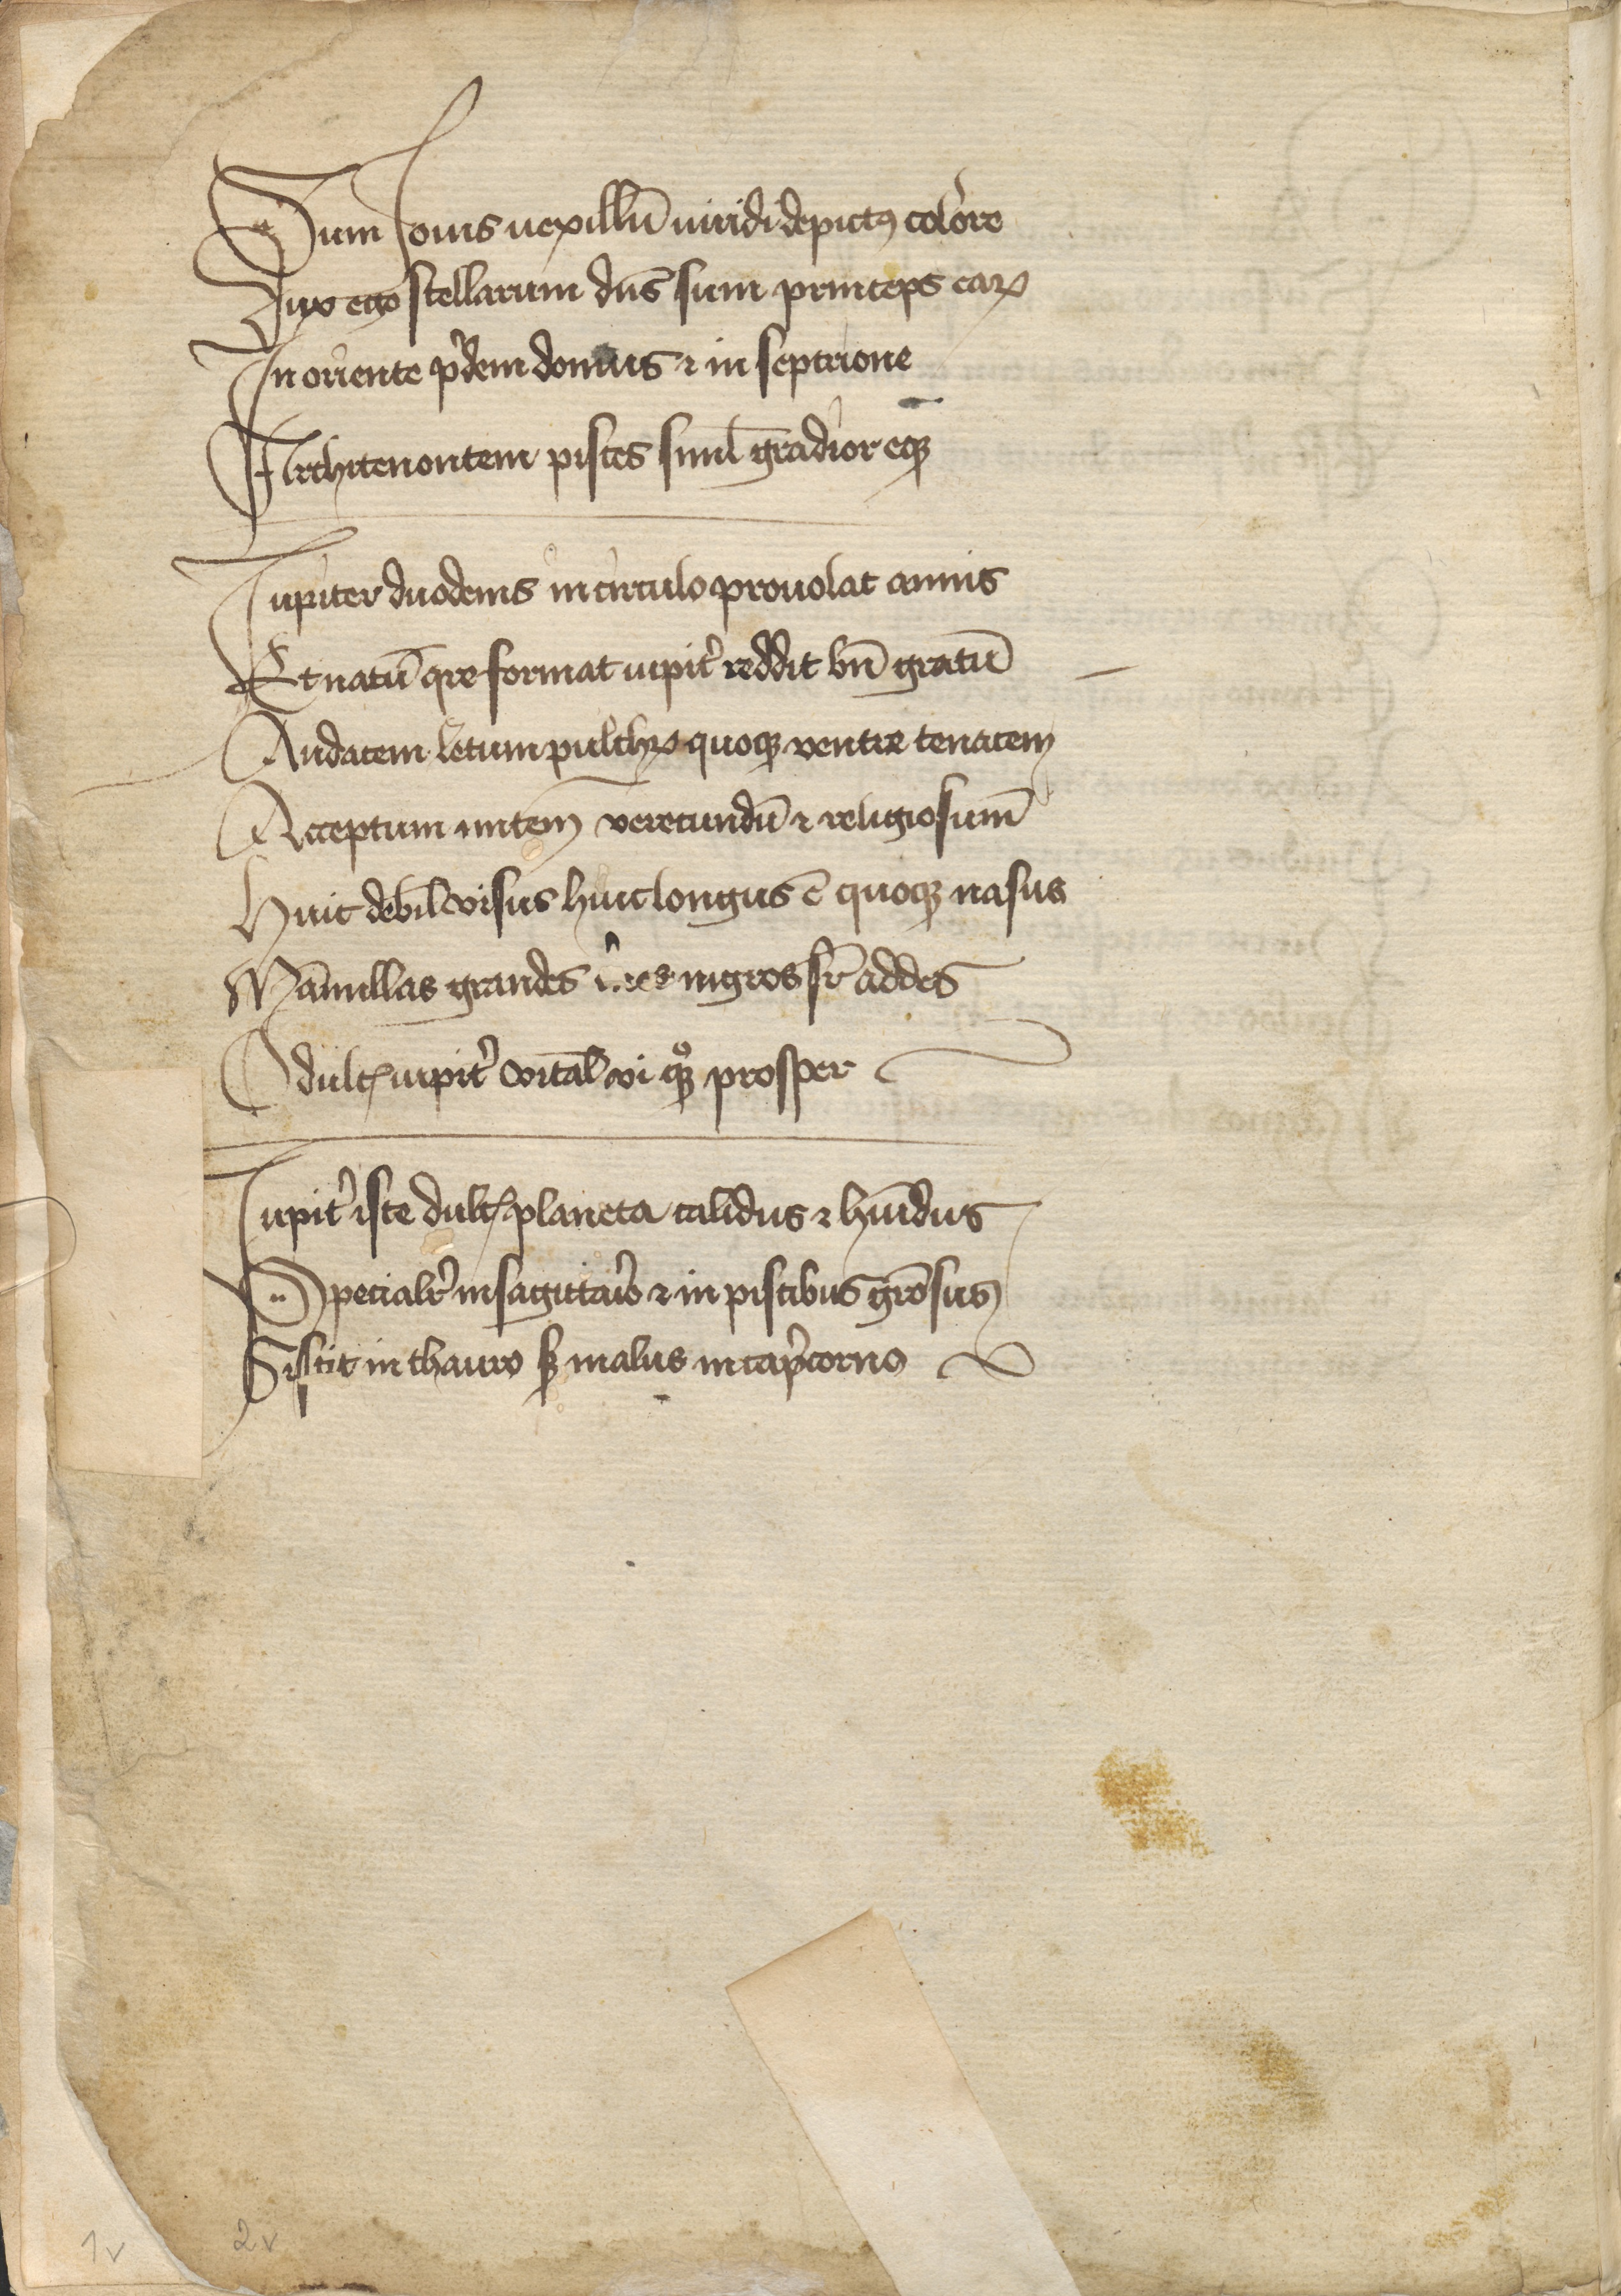 Sum Jouis uexillū uiridi depictꝰ colore
Dux ego stellarum dn̄s sum princeps eaꝝ
In oriente p̄dem domus ⁊ in septrione
Architenontem pisces siml̄ gradior eqꝫ
Jupiter duodenis in circulo prouolat annis
Et natū qͥre format iupit̉ reddit bn̄ gratū
Audacem letum pulchꝝ quoqꝫ ventre tenacem
Acceptum mitem verecundū ⁊ religiosum
Huic debil̓ visus huic longus ē quoqꝫ nasus
Māmillas grandes nigros sr̄ addes
O dulcꝭ iupit̉ vital̓ vi qͦꝫ prosper
Jupit̉ iste dulcꝭ planeta calidus ⁊ hūidus
Specialr̉ in sagittario ⁊ in piscibus gͦsus
Sistit in thauro sꝫ malus in capͥcorno
1v 2v